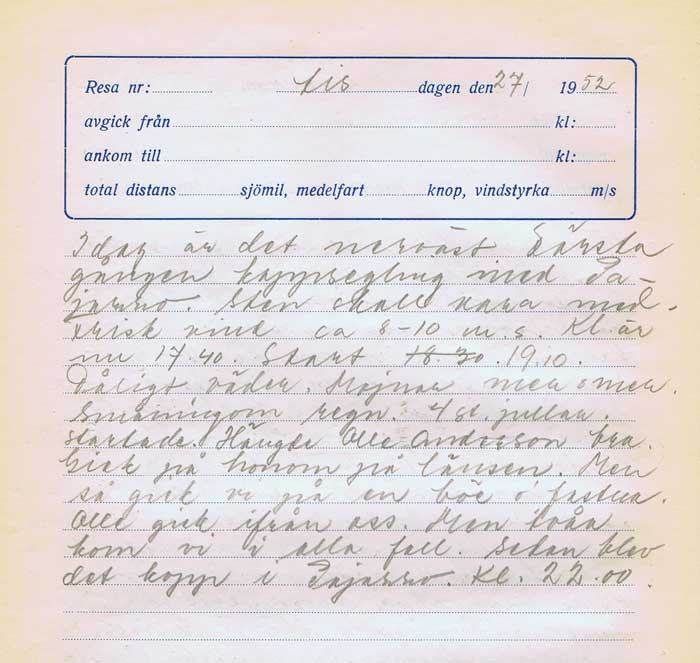 Resa nr: tis dagen den 27/ 1952
avgick från kl:
ankom till kl:
total distans sjömil, medelfart knop, vindstyrka m/s
Idag är det nervöst Första
gången kappsegling med Pa-
jarro. Sten skall vara med.
Frisk vind ca 8-10 m s. Kl är
nu 17.40. Start 18.30. 19.10.
Dåligt väder. Mojnar mer o mer.
Småningom regn. 4 st. jullar.
startade. Hängde Olle Andersson bra.
Gick på honom på länsen. Men
så gick vi på en böe o fastna.
Olle gick ifrån oss. Men tvåa
kom vi i alla fall. Sedan blev
det kapp i Pajarro. Kl. 22.00.